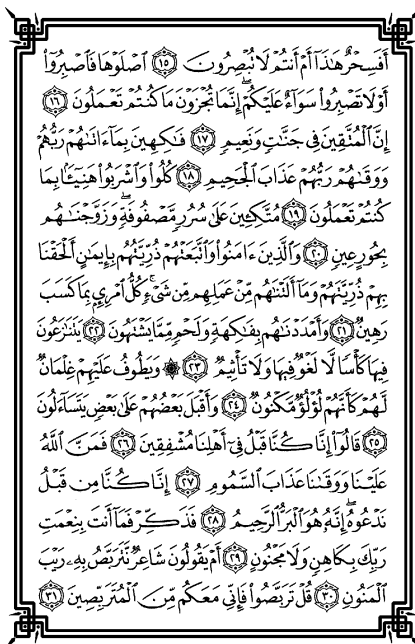 أَفَسِحْرٌ هَٰذَآ أَمْ أَنتُمْ لَا تُبْصِرُونَ ١٥ ٱصْلَوْهَا فَٱصْبِرُوٓا۟
أَوْ لَا تَصْبِرُوا۟ سَوَآءٌ عَلَيْكُمْ ۖ إِنَّمَا تُجْزَوْنَ مَا كُنتُمْ تَعْمَلُونَ ١٦
إِنَّ ٱلْمُتَّقِينَ فِى جَنَّٰتٍ وَنَعِيمٍ ١٧ فَٰكِهِينَ بِمَآ ءَاتَىٰهُمْ رَبُّهُمْ
وَوَقَىٰهُمْ رَبُّهُمْ عَذَابَ ٱلْجَحِيمِ ١٨ كُلُوا۟ وَٱشْرَبُوا۟ هَنِيٓـًٔۢا بِمَا
كُنتُمْ تَعْمَلُونَ ١٩ مُتَّكِـِٔينَ عَلَىٰ سُرُرٍ مَّصْفُوفَةٍ ۖ وَزَوَّجْنَٰهُم
بِحُورٍ عِينٍ ٢٠ وَٱلَّذِينَ ءَامَنُوا۟ وَٱتَّبَعَتْهُمْ ذُرِّيَّتُهُم بِإِيمَٰنٍ أَلْحَقْنَا
بِهِمْ ذُرِّيَّتَهُمْ وَمَآ أَلَتْنَٰهُم مِّنْ عَمَلِهِم مِّن شَىْءٍ ۚ كُلُّ ٱمْرِئٍۭ بِمَا كَسَبَ
رَهِينٌ ٢١ وَأَمْدَدْنَٰهُم بِفَٰكِهَةٍ وَلَحْمٍ مِّمَّا يَشْتَهُونَ ٢٢ يَتَنَٰزَعُونَ
فِيهَا كَأْسًا لَّا لَغْوٌ فِيهَا وَلَا تَأْثِيمٌ ٢٣ ۞ وَيَطُوفُ عَلَيْهِمْ غِلْمَانٌ
لَّهُمْ كَأَنَّهُمْ لُؤْلُؤٌ مَّكْنُونٌ ٢٤ وَأَقْبَلَ بَعْضُهُمْ عَلَىٰ بَعْضٍ يَتَسَآءَلُونَ
٢٥ قَالُوٓا۟ إِنَّا كُنَّا قَبْلُ فِىٓ أَهْلِنَا مُشْفِقِينَ ٢٦ فَمَنَّ ٱللَّهُ
عَلَيْنَا وَوَقَىٰنَا عَذَابَ ٱلسَّمُومِ ٢٧ إِنَّا كُنَّا مِن قَبْلُ
نَدْعُوهُ ۖ إِنَّهُۥ هُوَ ٱلْبَرُّ ٱلرَّحِيمُ ٢٨ فَذَكِّرْ فَمَآ أَنتَ بِنِعْمَتِ
رَبِّكَ بِكَاهِنٍ وَلَا مَجْنُونٍ ٢٩ أَمْ يَقُولُونَ شَاعِرٌ نَّتَرَبَّصُ بِهِۦ رَيْبَ
ٱلْمَنُونِ ٣٠ قُلْ تَرَبَّصُوا۟ فَإِنِّى مَعَكُم مِّنَ ٱلْمُتَرَبِّصِينَ ٣١